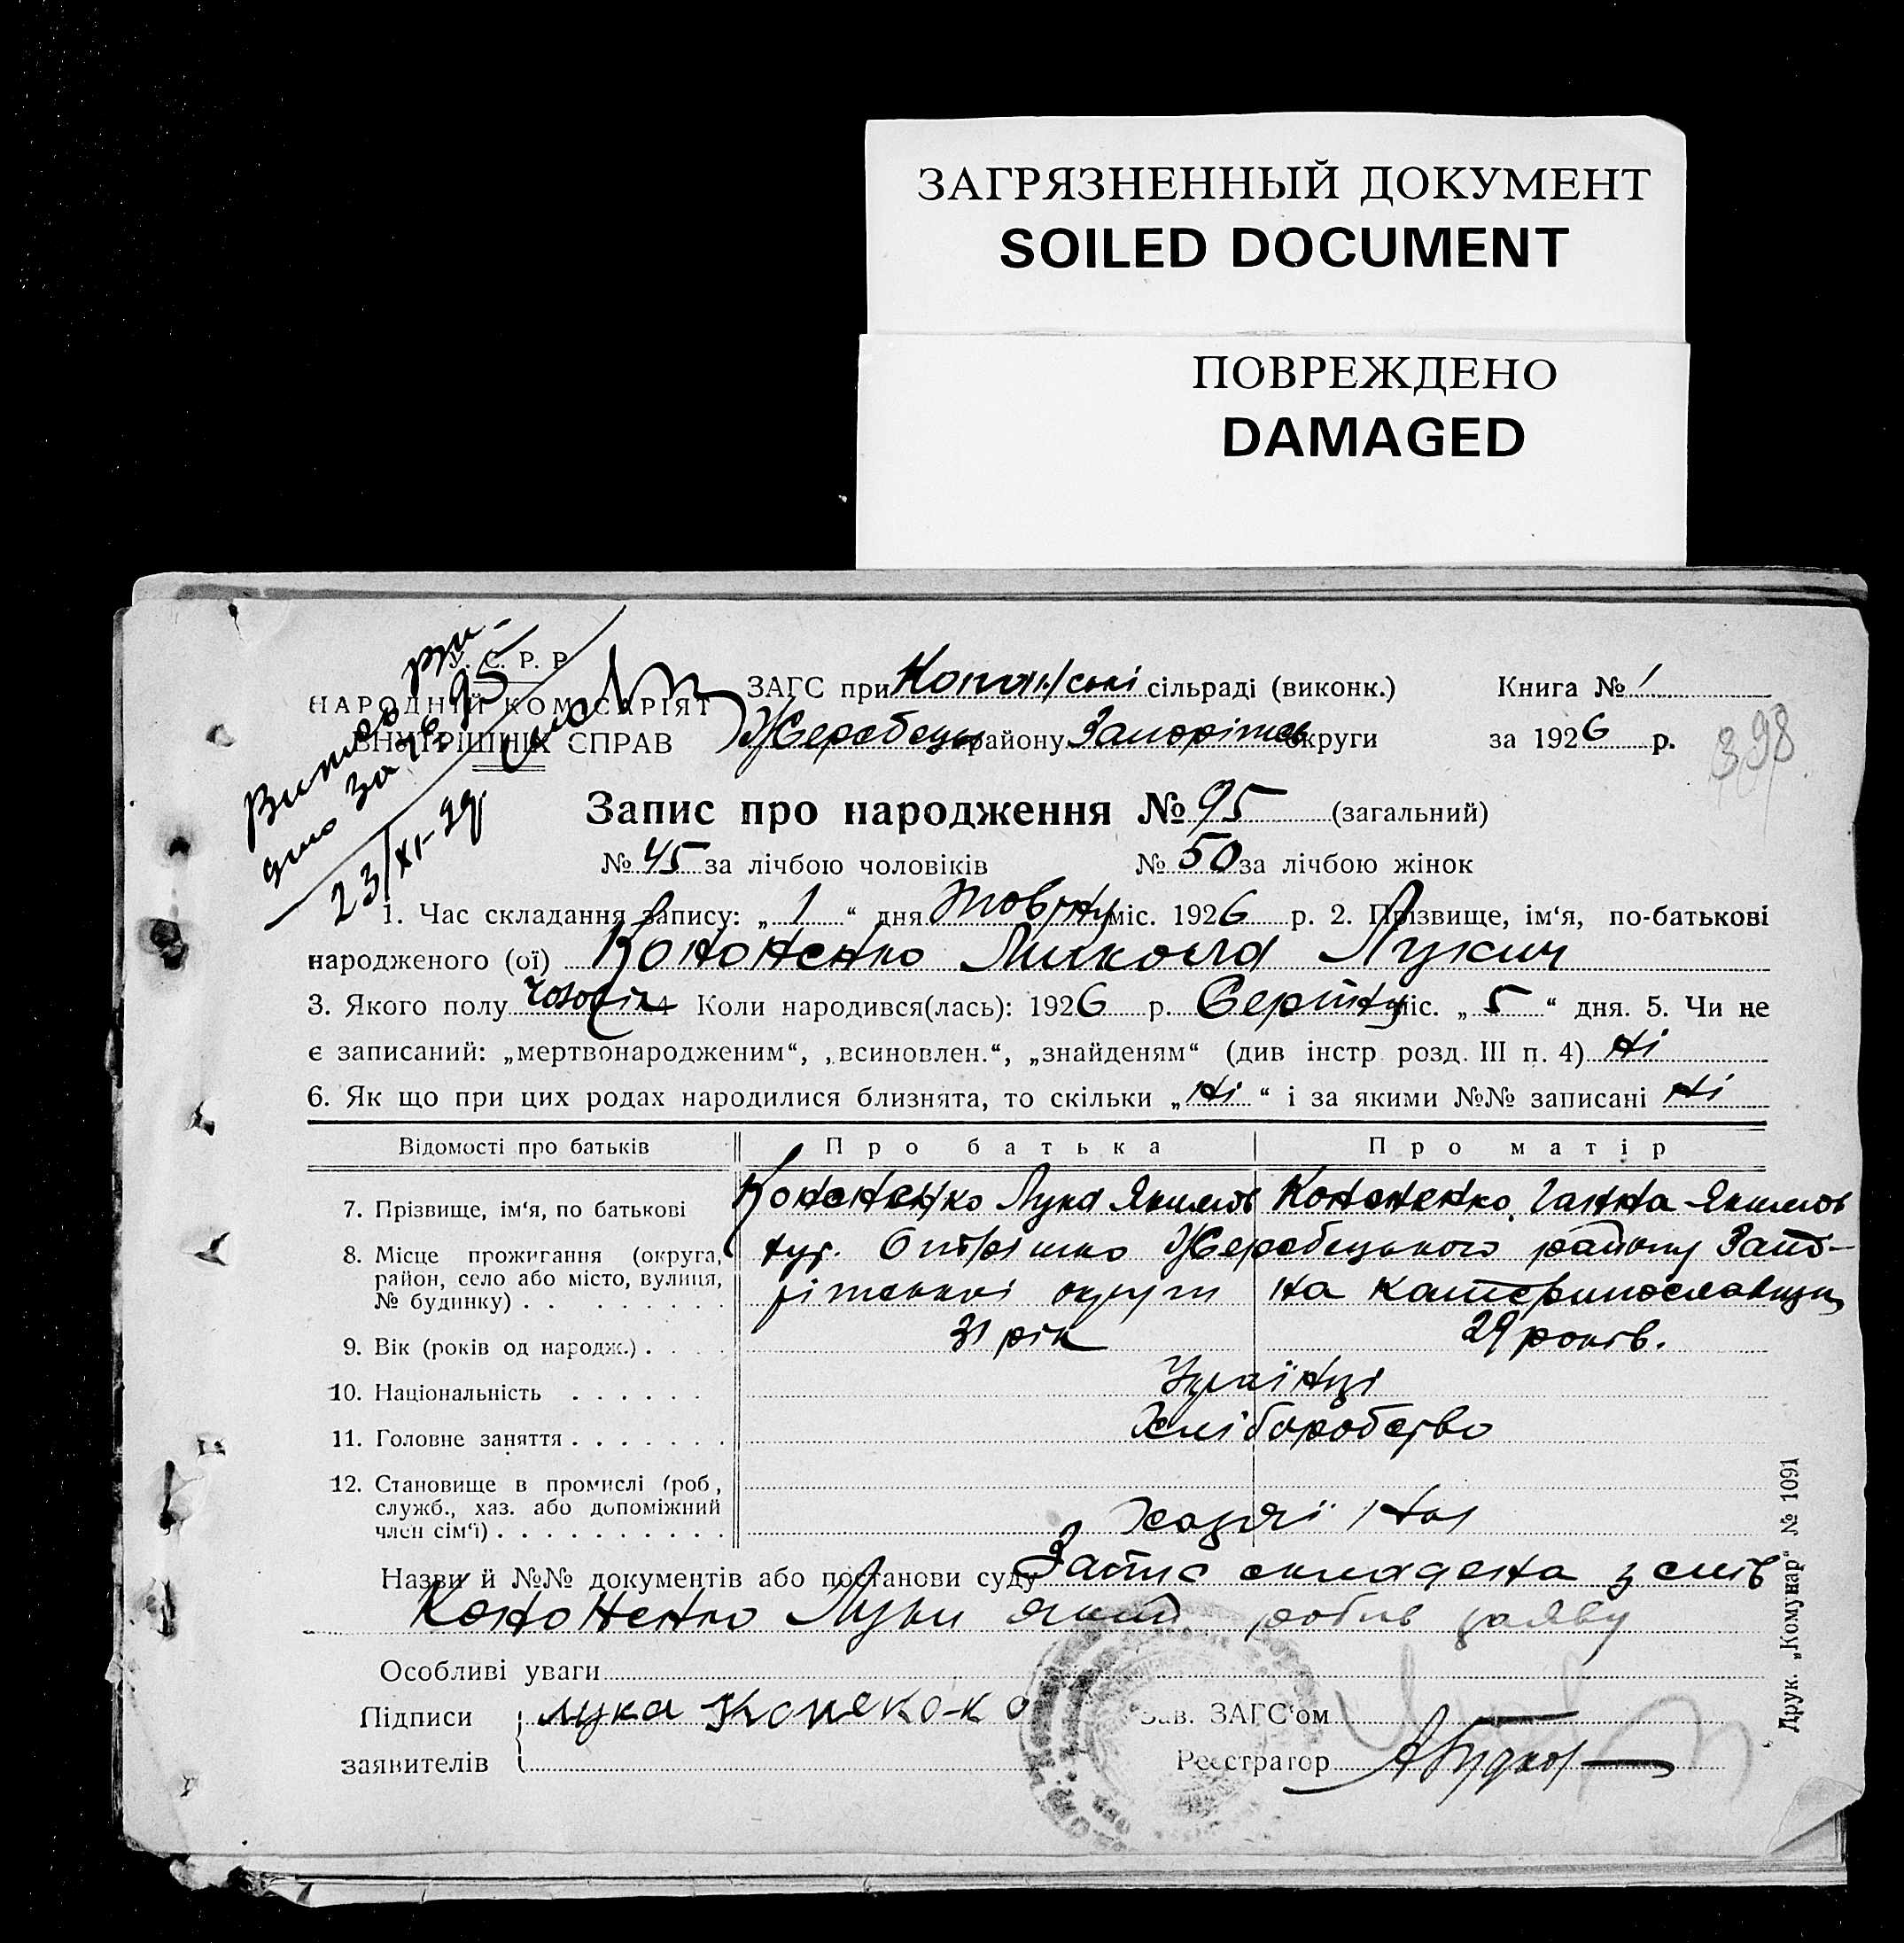 ЗАГРЯЗНЕННЫЙ ДОКУМЕНТ
SOILED DOCUMENT
ПОВРЕЖДЕНО
DAMAGED
У. С. Р. Р.
НАРОДНІЙ КОМІСАРІЯТ
ВНУТРІШНІХ СПРАВ
за № 95
23/XI-29р.
ЗАГС при сільраді (виконк.) Книга № 1
Жеребецьк району Запоріжськ округи за 1926 р.
398
Запис про народження № 95 (загальний)
№ 45 за лічбою чоловіків № 50 за лічбою жінок
1. Час складання запису: „ 1 “ дня Жовтну міс. 1926 р. 2. Прізвище, ім‘я, по-батькові
народженого (ої) Кононенко Микола Лукич
3. Якого полу чоловік 4 Коли народився(лась): 1926 р. Серпну міс. „ 5 “ дня. 5. Чи не
є записаний: „мертвонародженим“, „всиновлен.“, „знайденям“ (див інстр розд. III п. 4) ні
6. Як що при цих родах народилися близнята, то скільки „ ні “ і за якими №№ записані ні
Відомості про батьків Про батька Про матір
7. Прізвище, ім‘я, по батькові Кононенко Лука Якимов Кононенко Ганна Якимов
8. Місце проживання (округа, район, село або місто, вулиця, № будинку) . . . . . . . . .
хут. Жеребецького району Запо-
ріжської округи на Катеринославщи
9. Вік (років од народж.) . . . . 31 рік 29 років.
10. Національність . . . . . . Українці
11. Головне заняття . . . . . . . Хліборобство
12. Становище в промислі (роб,
служб., хаз. або допоміжний
член сім‘ї) . . . . . . . . . . Хазяїни
Назви й №№ документів або постанови суду Запис складена з слів
Кононенко Луки який робив заяву
Особливі уваги
Підписи лука
заявителів
Зав. ЗАГС‘ом
Реєстратор
Друк. „Комунар“ № 1091